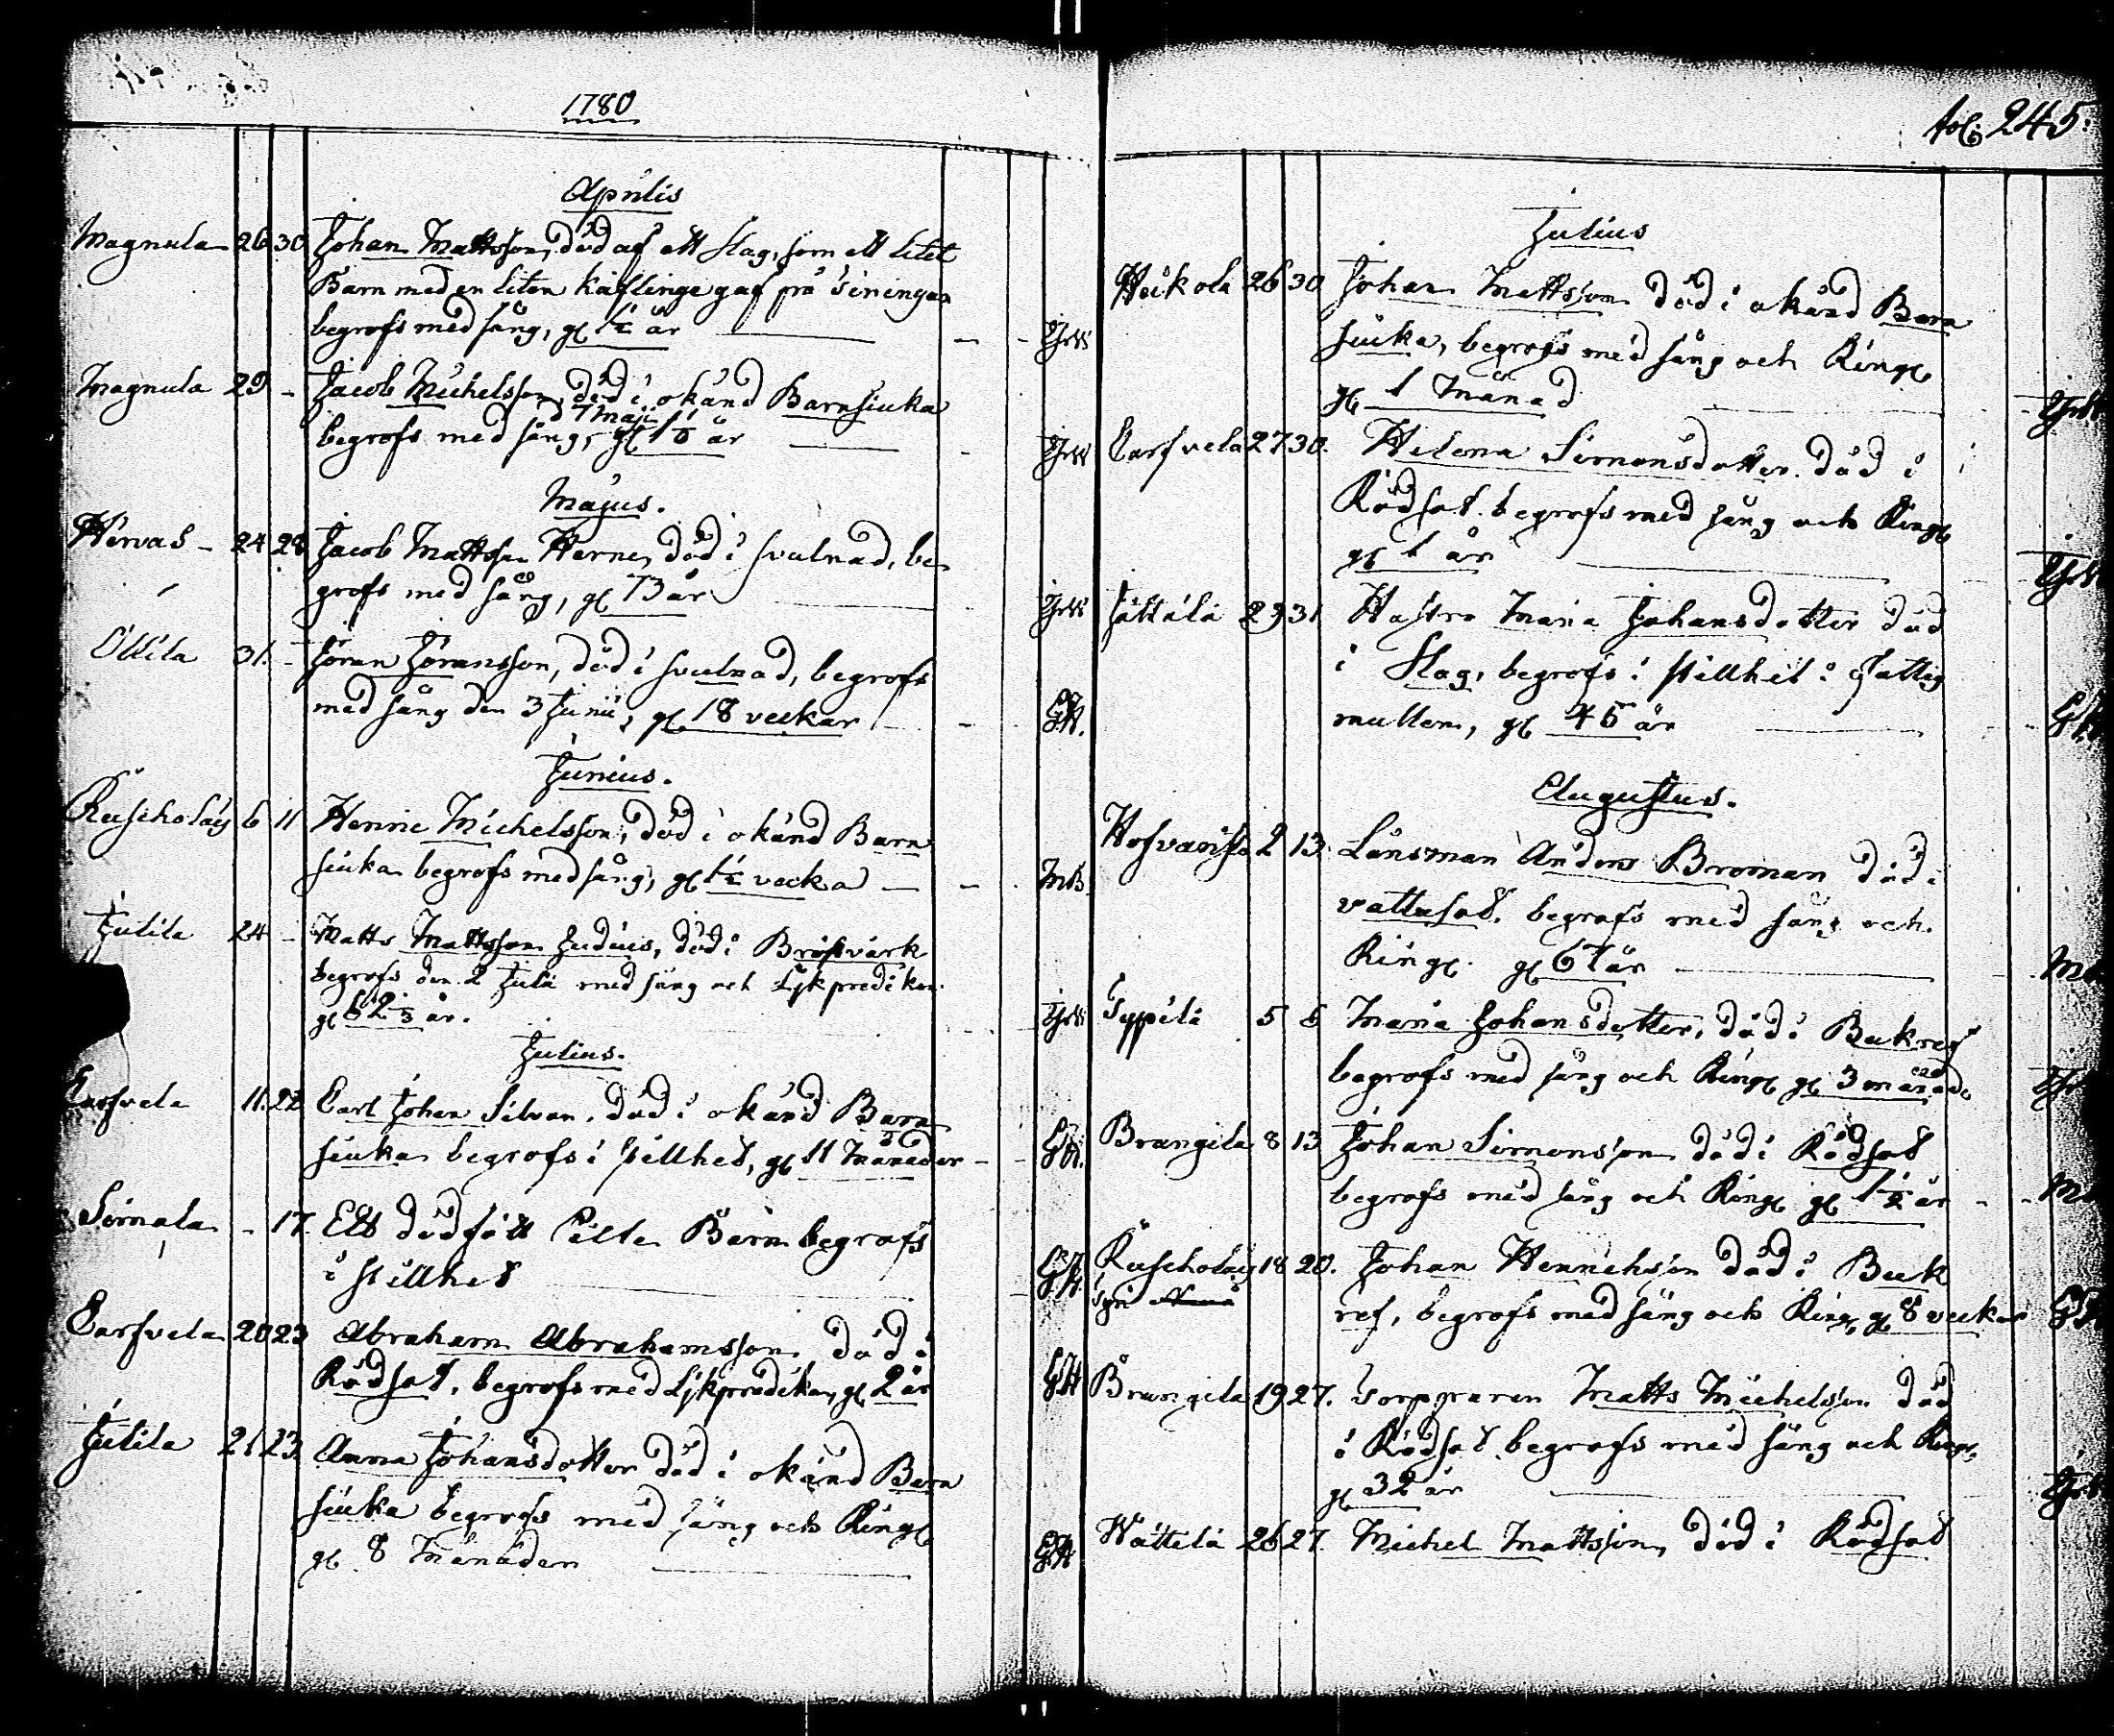 1780
Aprilis
Magnula 26 30 Johan Mattsson, död af ett slag, som ett litet
Barn med en liten käflinge gaf på tinningen
begrofs med sång, gl 1½ år
Magnula 29 - Jacob Michelsson, död i okänd Barnsiuka
d 7 Maji
begrofs med sång, gl år
Majus.
Hirvas - 24 28 Jacob Mattsson Herne, död i svulnad, be
grofs med sång, gl 73 år
Ollila 31. - Jöran Jöransson, död i svulnad, begrofs
med sång den 3 Junii, gl 18 veckor
Junius.
6 11 Henric Michelsson, död i okänd Barn
siuka begrofs med sång, gl 1½ vecka MB
Jutila 24 - Matts Mattsson Judius, död i Bröstvärk
begrofs den 2 Julii med sång och Lijkpredikan
gl år.
Julius.
Carfvela 11. 22 Carl Johan Silvan. död i okänd Barn
siuka begrofs i stillhet, gl 11 Månader
- 17. Ett dödfödt Pilte Barn begrofs
i stillhet
Carfvela 20 23 Abraham Abrahamsson. död i
Rödsot, begrofs med Lijkpredikan, gl 2 år
Jutila 21 23. Anna Johansdotter död i okänd Barn
siuka begrofs med sång och Ringl
gl. 8 Månader
fol: 245:
Julius
Heikola 26 30 Johan Mattsson död i okänd Barn
siuka, begrofs med sång och Ringl
gl 1 Månad
Carfvela 27 30. Helena Simonsdotter. död i
Rödsot. begrofs med sång och Ringl
gl 1 år
29 31 Maria Johansdotter död
i Slag, begrofs i stillhet i fattig
mullen, gl 45 år
Augustus.
2 13. Länsman Anders Broman död i
vattusot. begrofs med sång och
Ringl. gl 67 år
Typpilä 5 6 Maria Johansdotter, död i Bukref
begrofs med sång och Ringl gl 3 månad
Brangila 8 13 Johan Simonsson död i Rödsot
begrofs med sång och Ringl gl 1½ år
18 20. Johan Henrichsson död i Buk
ref, begrofs med sång och Ringl, gl 8 veckor
Brangila 19 27. Corpraren Matts Michelsson död
i Rödsot begrofs med sång och Ringl,
gl 32 år
Wättilä 26 27. Michel Mattsson, död i Rödsot